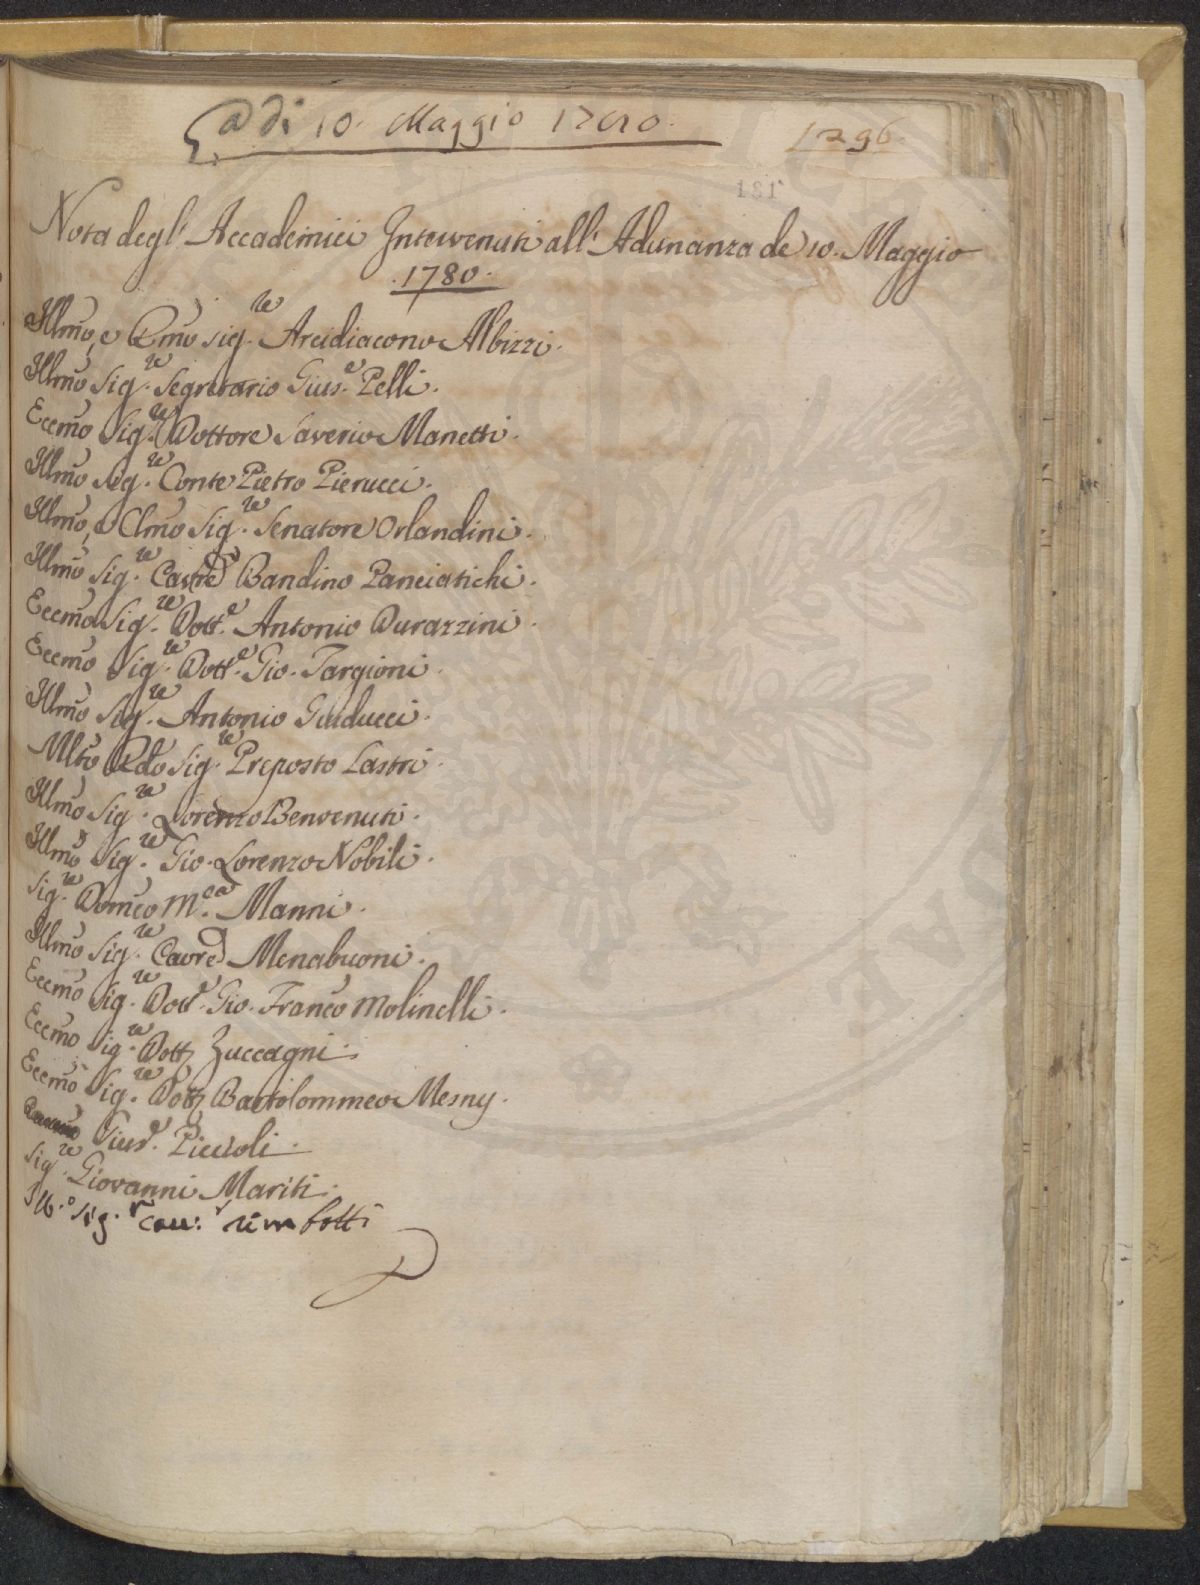 a di 10. Maggio 1780.
1296.
131
Nota degl' Accademici Intervenuti all' Adunanza de 10. Maggio
.1780.
Illmo, e Rmo Sig.re Arcidiacono Albizzi.
Illmo Sig.re Segretario Gius.e Pelli.
Eccmo Sig.re Dottore Saverio Manetti.
Illmo Sig.re Conte Pietro Pierucci.
Illmo, e Clmo Sig.re Senatore Orlandini.
Illmo Sig.re Cavre Bandino Panciatichi.
Eccmo Sig.re Dott.e Antonio Durazzini.
Eccmo Sig.re Dott.e Gio. Targioni.
Illmo Sig.re Antonio Guiducci.
Mlto Rdo Sig.re Preposto Lastri.
Illmo Sig.re Lorenzo Benvenuti.
Illmo Sig.re Gio. Lorenzo Nobili.
Sig.re Domco M.ca Manni.
Illmo Sig.re Cavre Menabuoni.
Eccmo Sig.re Dott.e Gio. Franco Molinelli.
Eccmo Sig.re Dott Zuccagni.
Eccmo Sig.re Dott Bartolommeo Mesny.
Gius.e Piccioli.
Sig.re Giovanni Mariti.
Ill.o Sig.r cau:r rimbotti